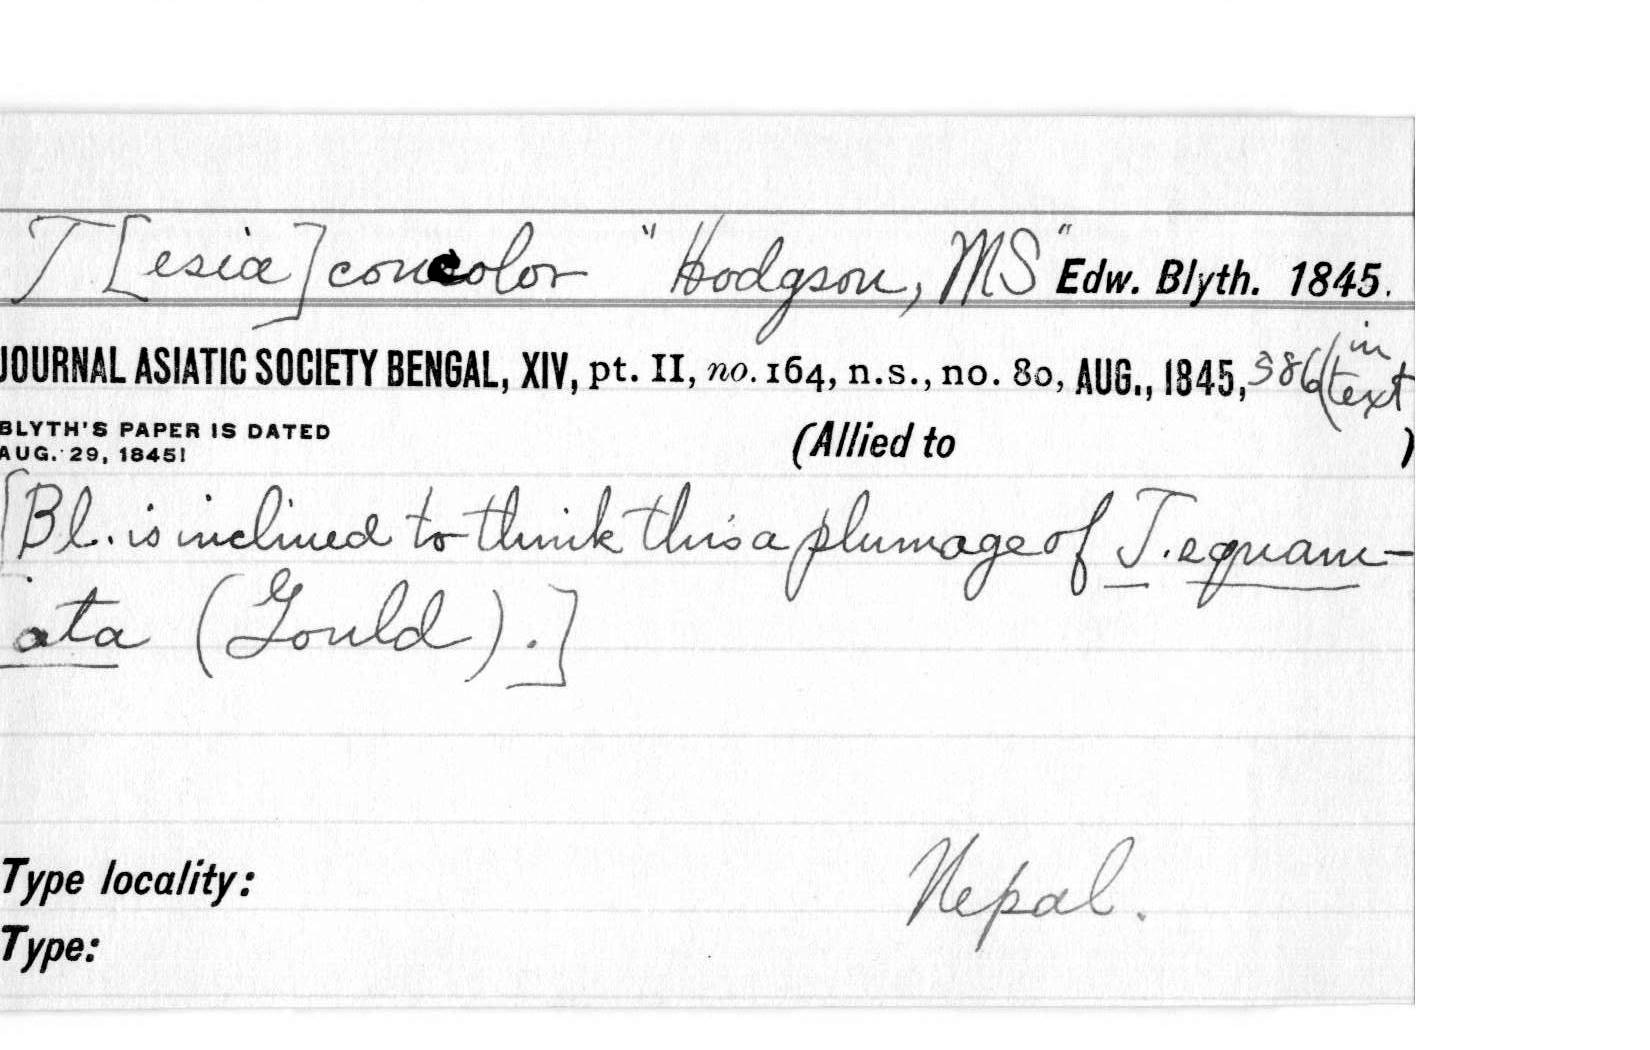 T[esia] concolor "Hodgson, MS" Edw. Blyth. 1845.
JOURNAL ASIATIC SOCIETY BENGAL, XIV, pt. II, no. 164, n.s., no. 80, AUG., 1845, 586 (in text
BLYTH'S PAPER IS DATED
AUG. 29, 1845!
(Allied to )
[Bl. is inclined to think this a plumage of T. equam-
ata (Gould).]
Type locality: Nepal.
Type: